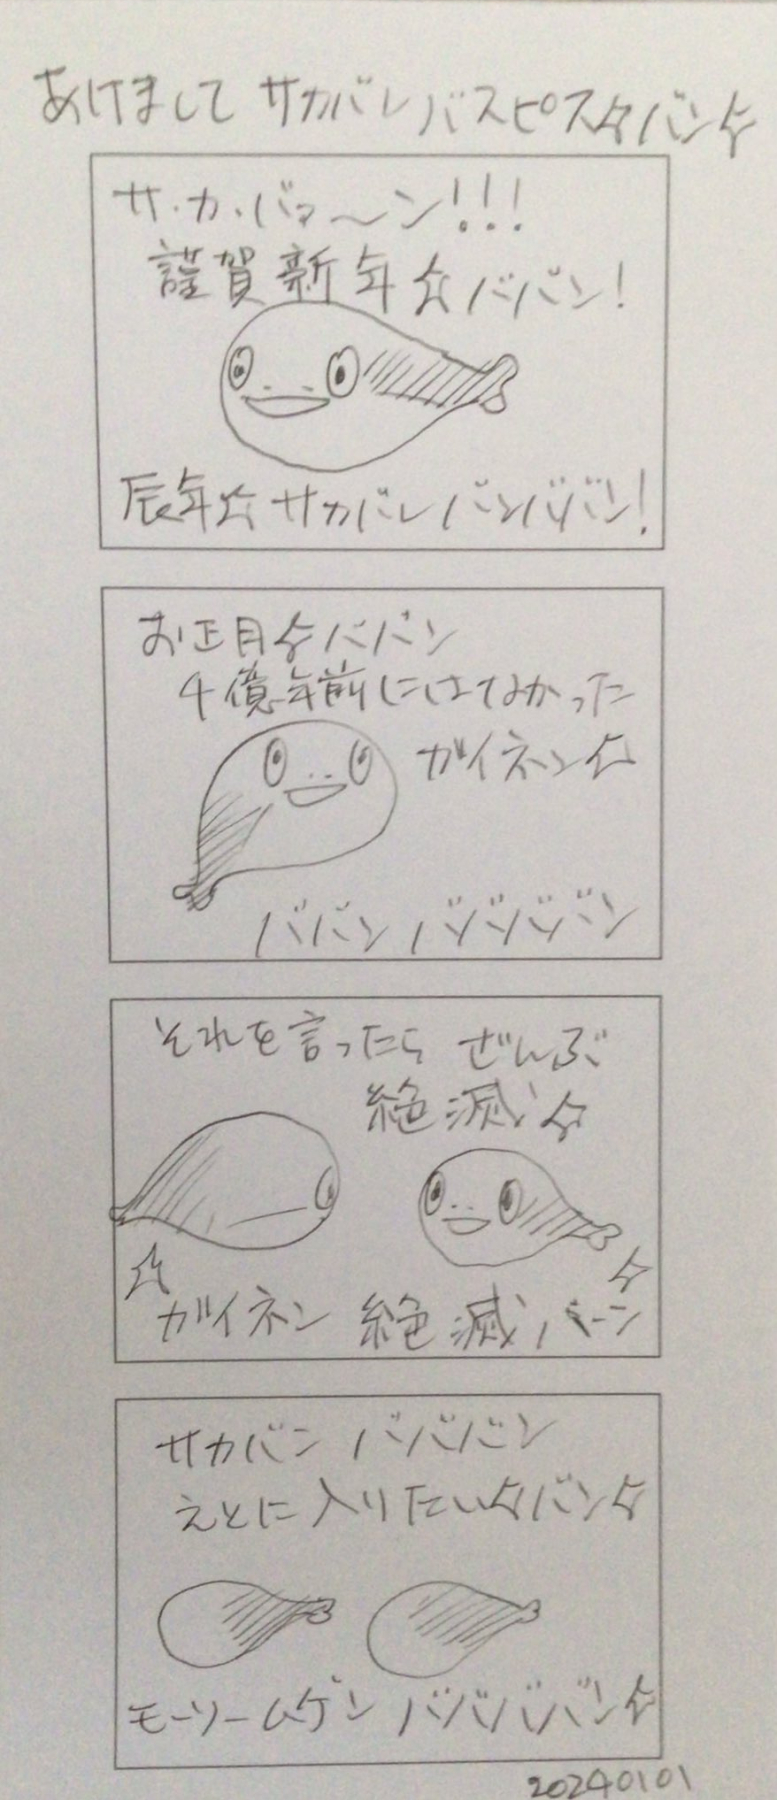 あけまして サカバンバスピス☆バン☆
サ・カ・バァ〜ン!!!
謹賀新年☆ババン!
辰年☆サカバンバンババン!
お正月☆ババン
4億年前にはなかった
ガイネン☆
ババンババババン
それを言ったら ぜんぶ
絶滅☆
ガイネン 絶滅バーン
サカバン バババン
えとに入りたい☆バン☆
モーソームゲン ババババン☆
20240101